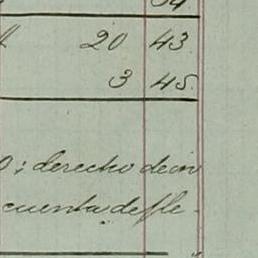 20 43
3 45
derecho de in
cuenta de fle-